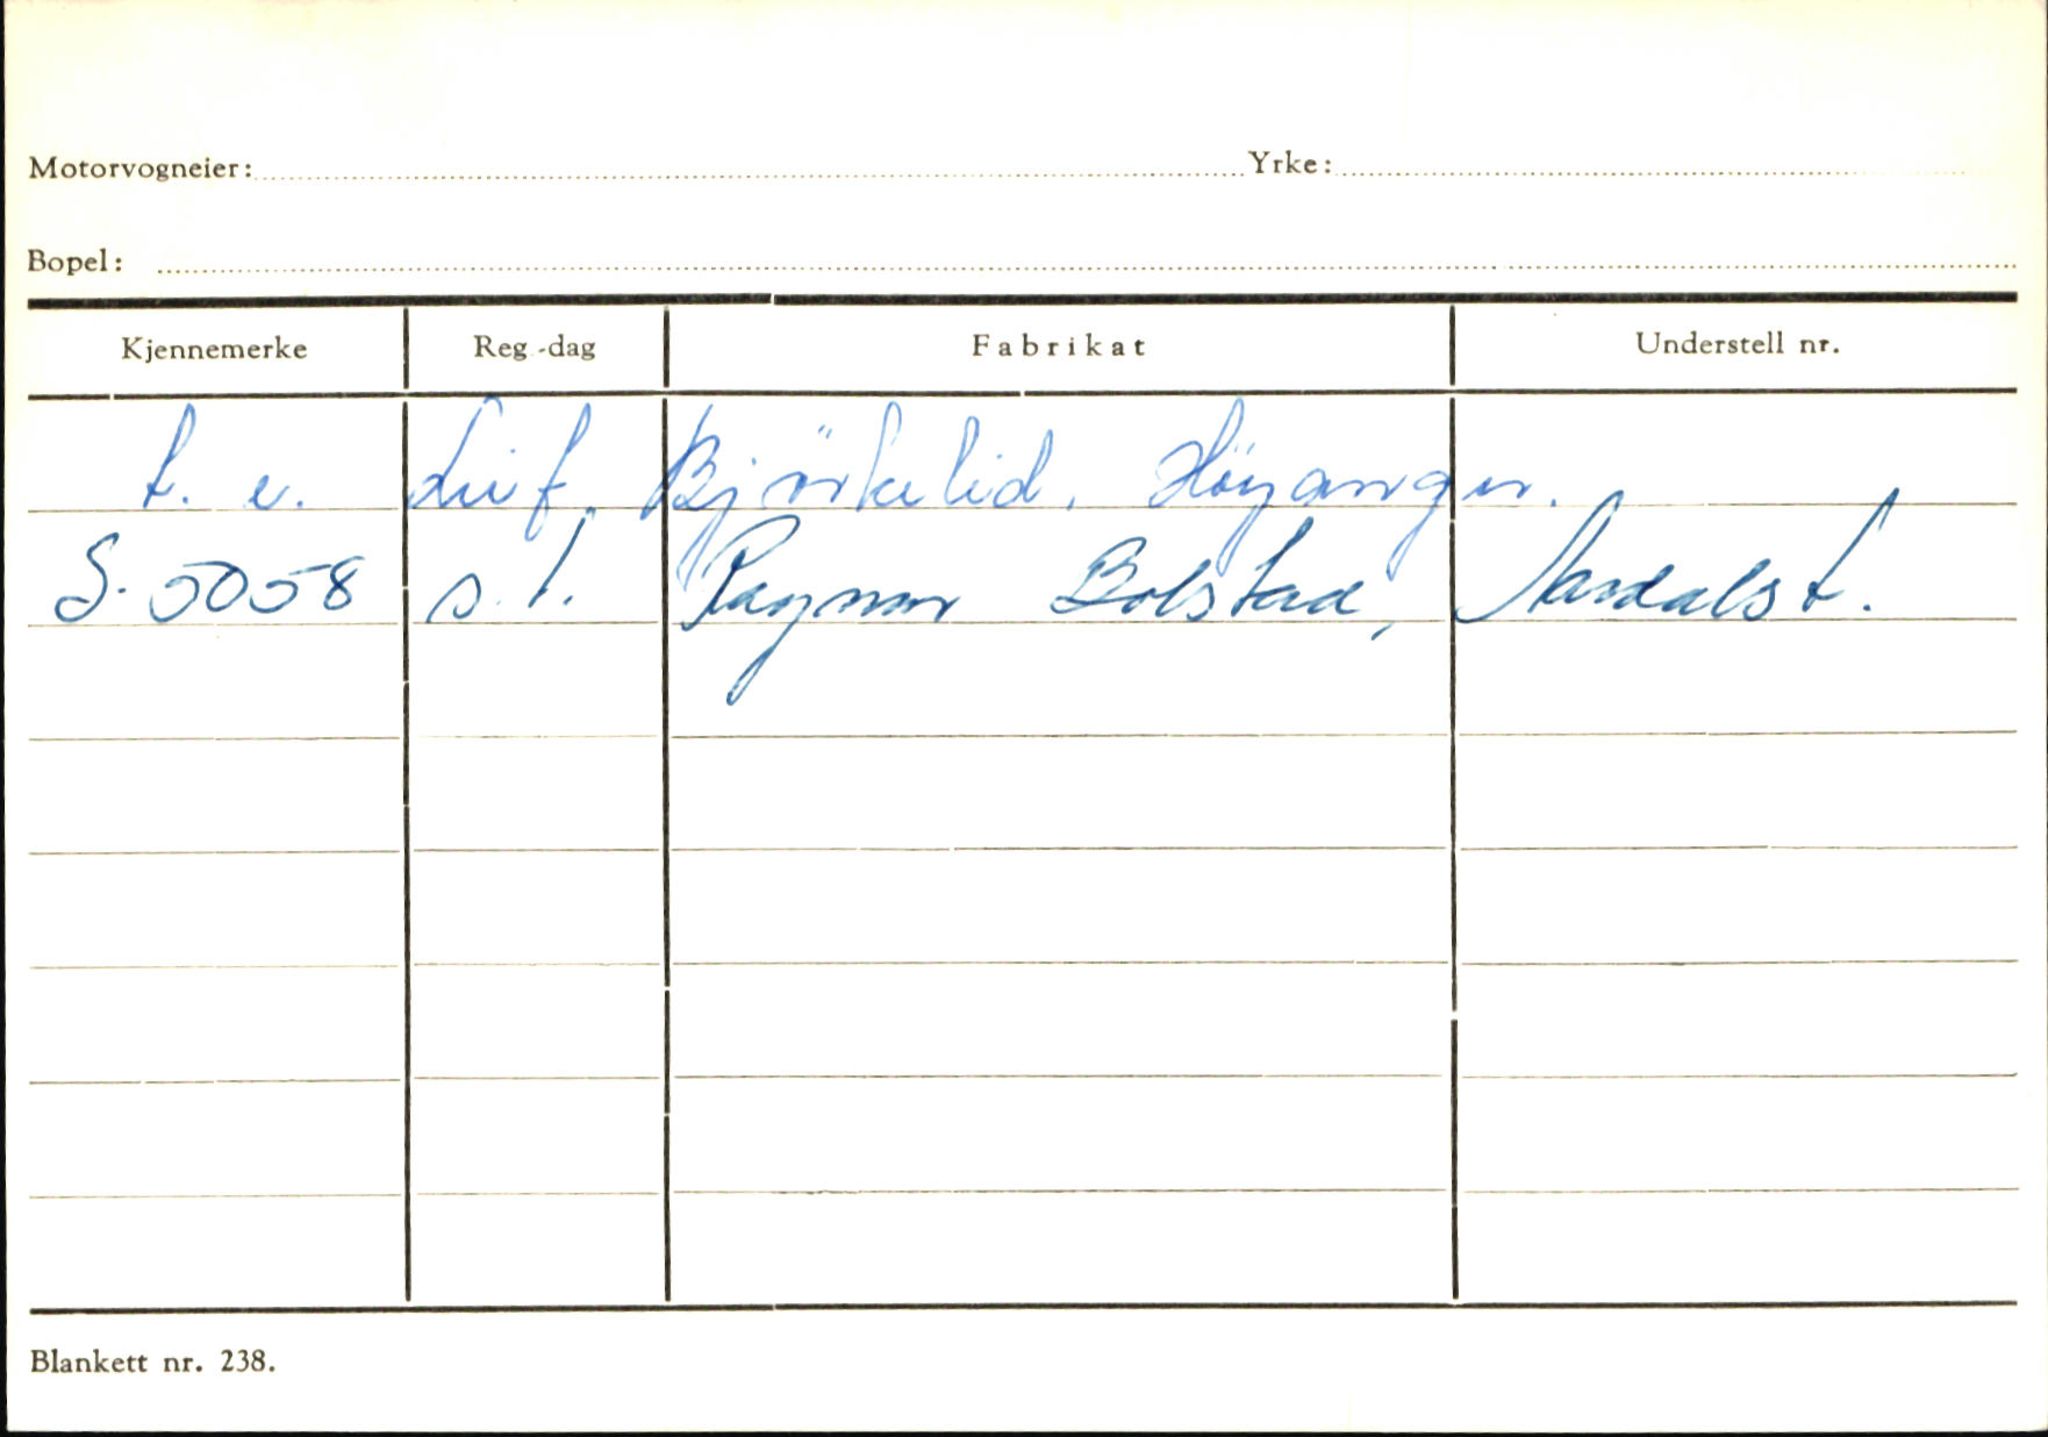 Motorvogneier: Yrke:
Bopel:
Kjennemerke Reg.-dag Fabrikat Understell nr.
t. e. Leif Björkelid, Höyanger.
S. 5058 s. t. Ragnar Bolstad, Aardalst.
Blankett nr. 238.